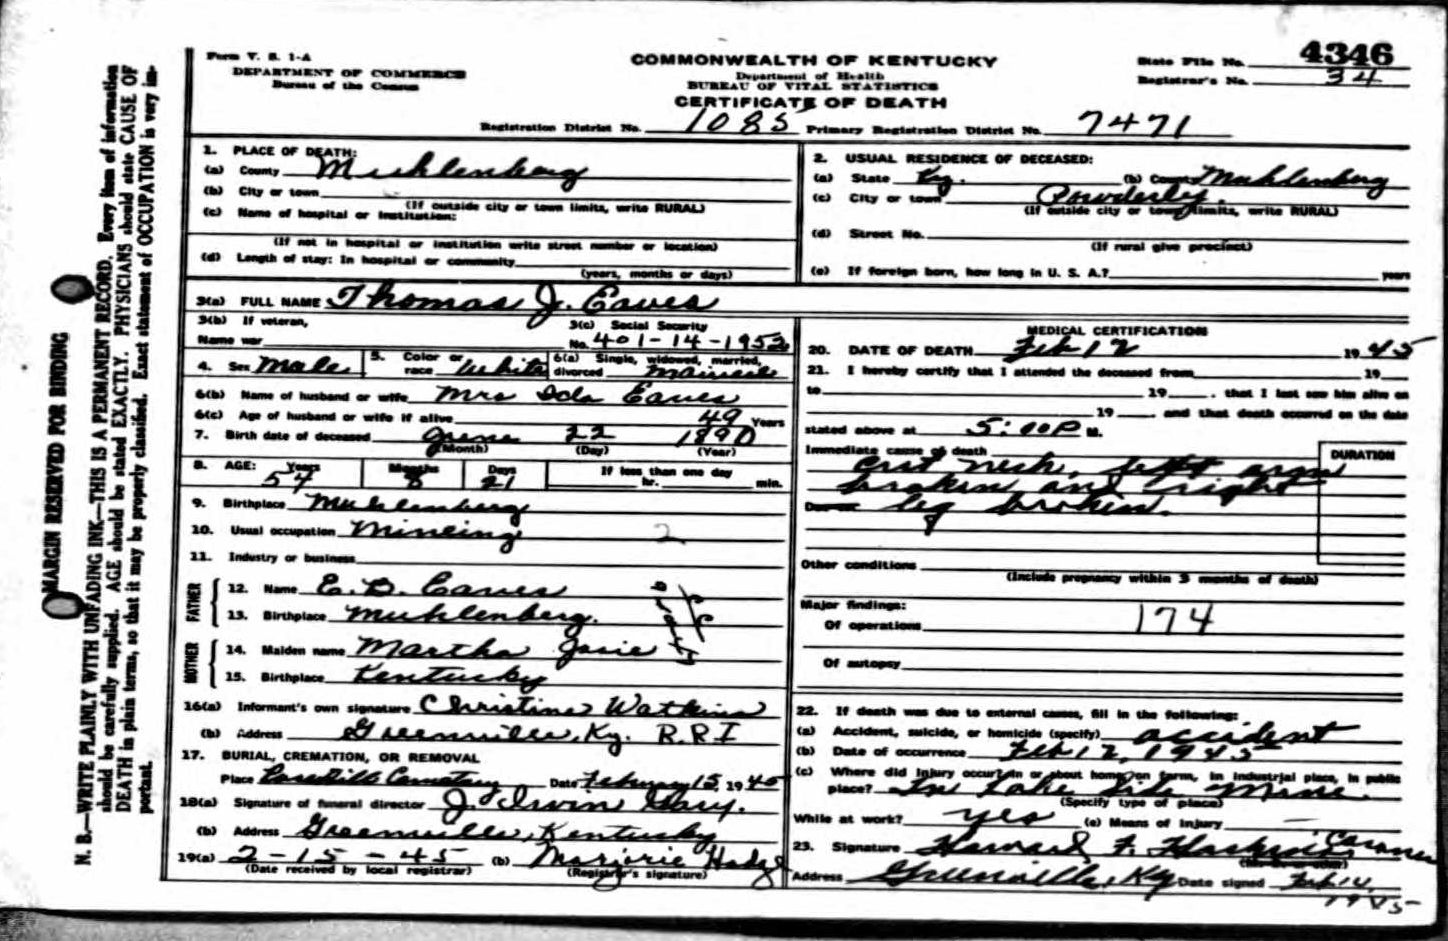 Form V. S. 1-A
DEPARTMENT OF COMMERCE
Bureau of the Census
COMMONWEALTH OF KENTUCKY
Department of Health
BUREAU OF VITAL STATISTICS
CERTIFICATE OF DEATH
State File No. 4346
Registrar's No. 34
Registration District No. 1085 Primary Registration District No. 7471
MARGIN RESERVED FOR BINDING
N. B.—WRITE PLAINLY WITH UNFADING INK—THIS IS A PERMANENT RECORD. Every item of information
should be carefully supplied. AGE should be stated EXACTLY. PHYSICIANS should state CAUSE OF
DEATH in plain terms, so that it may be properly classified. Exact statement of OCCUPATION is very im-
portant.
1. PLACE OF DEATH:
(a) County Muhlenberg
(b) City or town
(If outside city or town limits, write RURAL)
(c) Name of hospital or institution:
(If not in hospital or institution write street number or location)
(d) Length of stay: In hospital or community
(years, months or days)
2. USUAL RESIDENCE OF DECEASED:
(a) State Ky. (b) County Muhlenberg
(c) City or town Powderly.
(If outside city or town limits, write RURAL)
(d) Street No.
(If rural give precinct)
(e) If foreign born, how long in U. S. A.? years
3(a) FULL NAME Thomas J. Eaves
3(b) If veteran,
Name war
3(c) Social Security
No. 401-14-1952
4. Sex Male 5. Color or race White 6(a) Single, widowed, married, divorced
6(b) Name of husband or wife Mrs Ida Eaves
6(c) Age of husband or wife if alive 49 Years
7. Birth date of deceased June 22 1890
(Month) (Day) (Year)
8. AGE: Years Months Days If less than one day
54 8 21 hr. min.
9. Birthplace Muhlenberg
10. Usual occupation Mineing 2
11. Industry or business
FATHER
12. Name E. D. Eaves
13. Birthplace Muhlenberg.
MOTHER
14. Maiden name Martha Josie
15. Birthplace Kentucky
16(a) Informant's own signature Christine Watkins
(b) Address Greenville, Ky. R.R.I
17. BURIAL, CREMATION, OR REMOVAL
Place Cemetery Date February 15 1945
18(a) Signature of funeral director J. Irvin Gary.
(b) Address Greenville, Kentucky
19(a) 2-15-45 (b) Marjorie
(Date received by local registrar) (Registrar's signature)
MEDICAL CERTIFICATION
20. DATE OF DEATH Feb 12 1945
21. I hereby certify that I attended the deceased from 19
to 19 , that I last saw him alive on
19 and that death occurred on the date
stated above at 5:00P M.
Immediate cause of death DURATION
Cut neck, left arm
broken and right
Due to leg broken.
Other conditions
(Include pregnancy within 3 months of death)
Major findings:
Of operations 174
Of autopsy
22. If death was due to external causes, fill in the following:
(a) Accident, suicide, or homicide (specify) accident
(b) Date of occurrence Feb 12, 1945
(c) Where did injury occur in or about home, on farm, in industrial place, in public
place? In Lake Side Mine.
(Specify type of place)
While at work? yes (e) Means of Injury —
23. Signature Howard F. Coroner
Address Greenville, Ky Date signed Feb 14,
1945